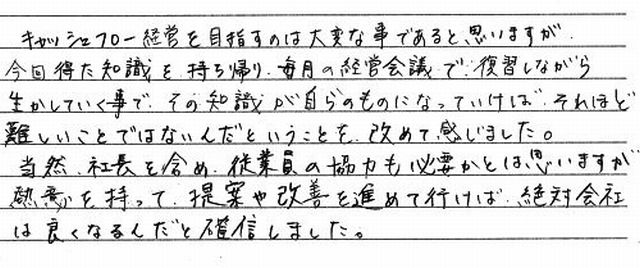 キャッシュフロー経営を目指すのは大変な事であると思いますが、
今回得た知識を持ち帰り、毎月の経営会議で、復習しながら
生かしていく事で、その知識が自らのものになっていけば、それほど
難しいことではないんだということを、改めて感じました。
当然、社長を含め、従業員の協力も必要かとは思いますが
熱意を持って、提案や改善を進めて行けば、絶対会社
は良くなるんだと確信しました。